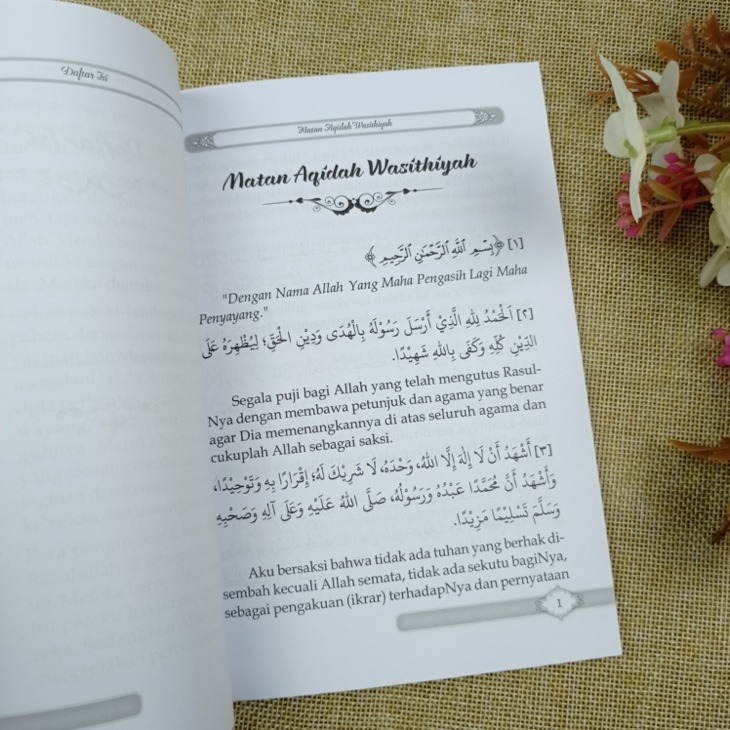 Daftar Isi
Matan Aqidah Wasithiyah
Matan Aqidah Wasithiyah
[١] ﴿بِسْمِ ٱللَّهِ ٱلرَّحْمَٰنِ ٱلرَّحِيمِ﴾
"Dengan Nama Allah Yang Maha Pengasih Lagi Maha
Penyayang."
[٢] اَلْحَمْدُ لِلهِ الَّذِيْ أَرْسَلَ رَسُوْلَهُ بِالْهُدَى وَدِيْنِ الْحَقِّ؛ لِيُظْهِرَهُ عَلَى
الدِّيْنِ كُلِّهِ وَكَفَى بِاللهِ شَهِيْدًا.
Segala puji bagi Allah yang telah mengutus Rasul-
Nya dengan membawa petunjuk dan agama yang benar
agar Dia memenangkannya di atas seluruh agama dan
cukuplah Allah sebagai saksi.
[٣] أَشْهَدُ أَنْ لَا إِلٰهَ إِلَّا اللهُ، وَحْدَهُ، لَا شَرِيْكَ لَهُ؛ إِقْرَارًا بِهِ وَتَوْحِيْدًا،
وَأَشْهَدُ أَنَّ مُحَمَّدًا عَبْدُهُ وَرَسُوْلُهُ، صَلَّى اللهُ عَلَيْهِ وَعَلَى آلِهِ وَصَحْبِهِ
وَسَلَّمَ تَسْلِيْمًا مَزِيْدًا.
Aku bersaksi bahwa tidak ada tuhan yang berhak di-
sembah kecuali Allah semata, tidak ada sekutu bagiNya,
sebagai pengakuan (ikrar) terhadapNya dan pernyataan
1